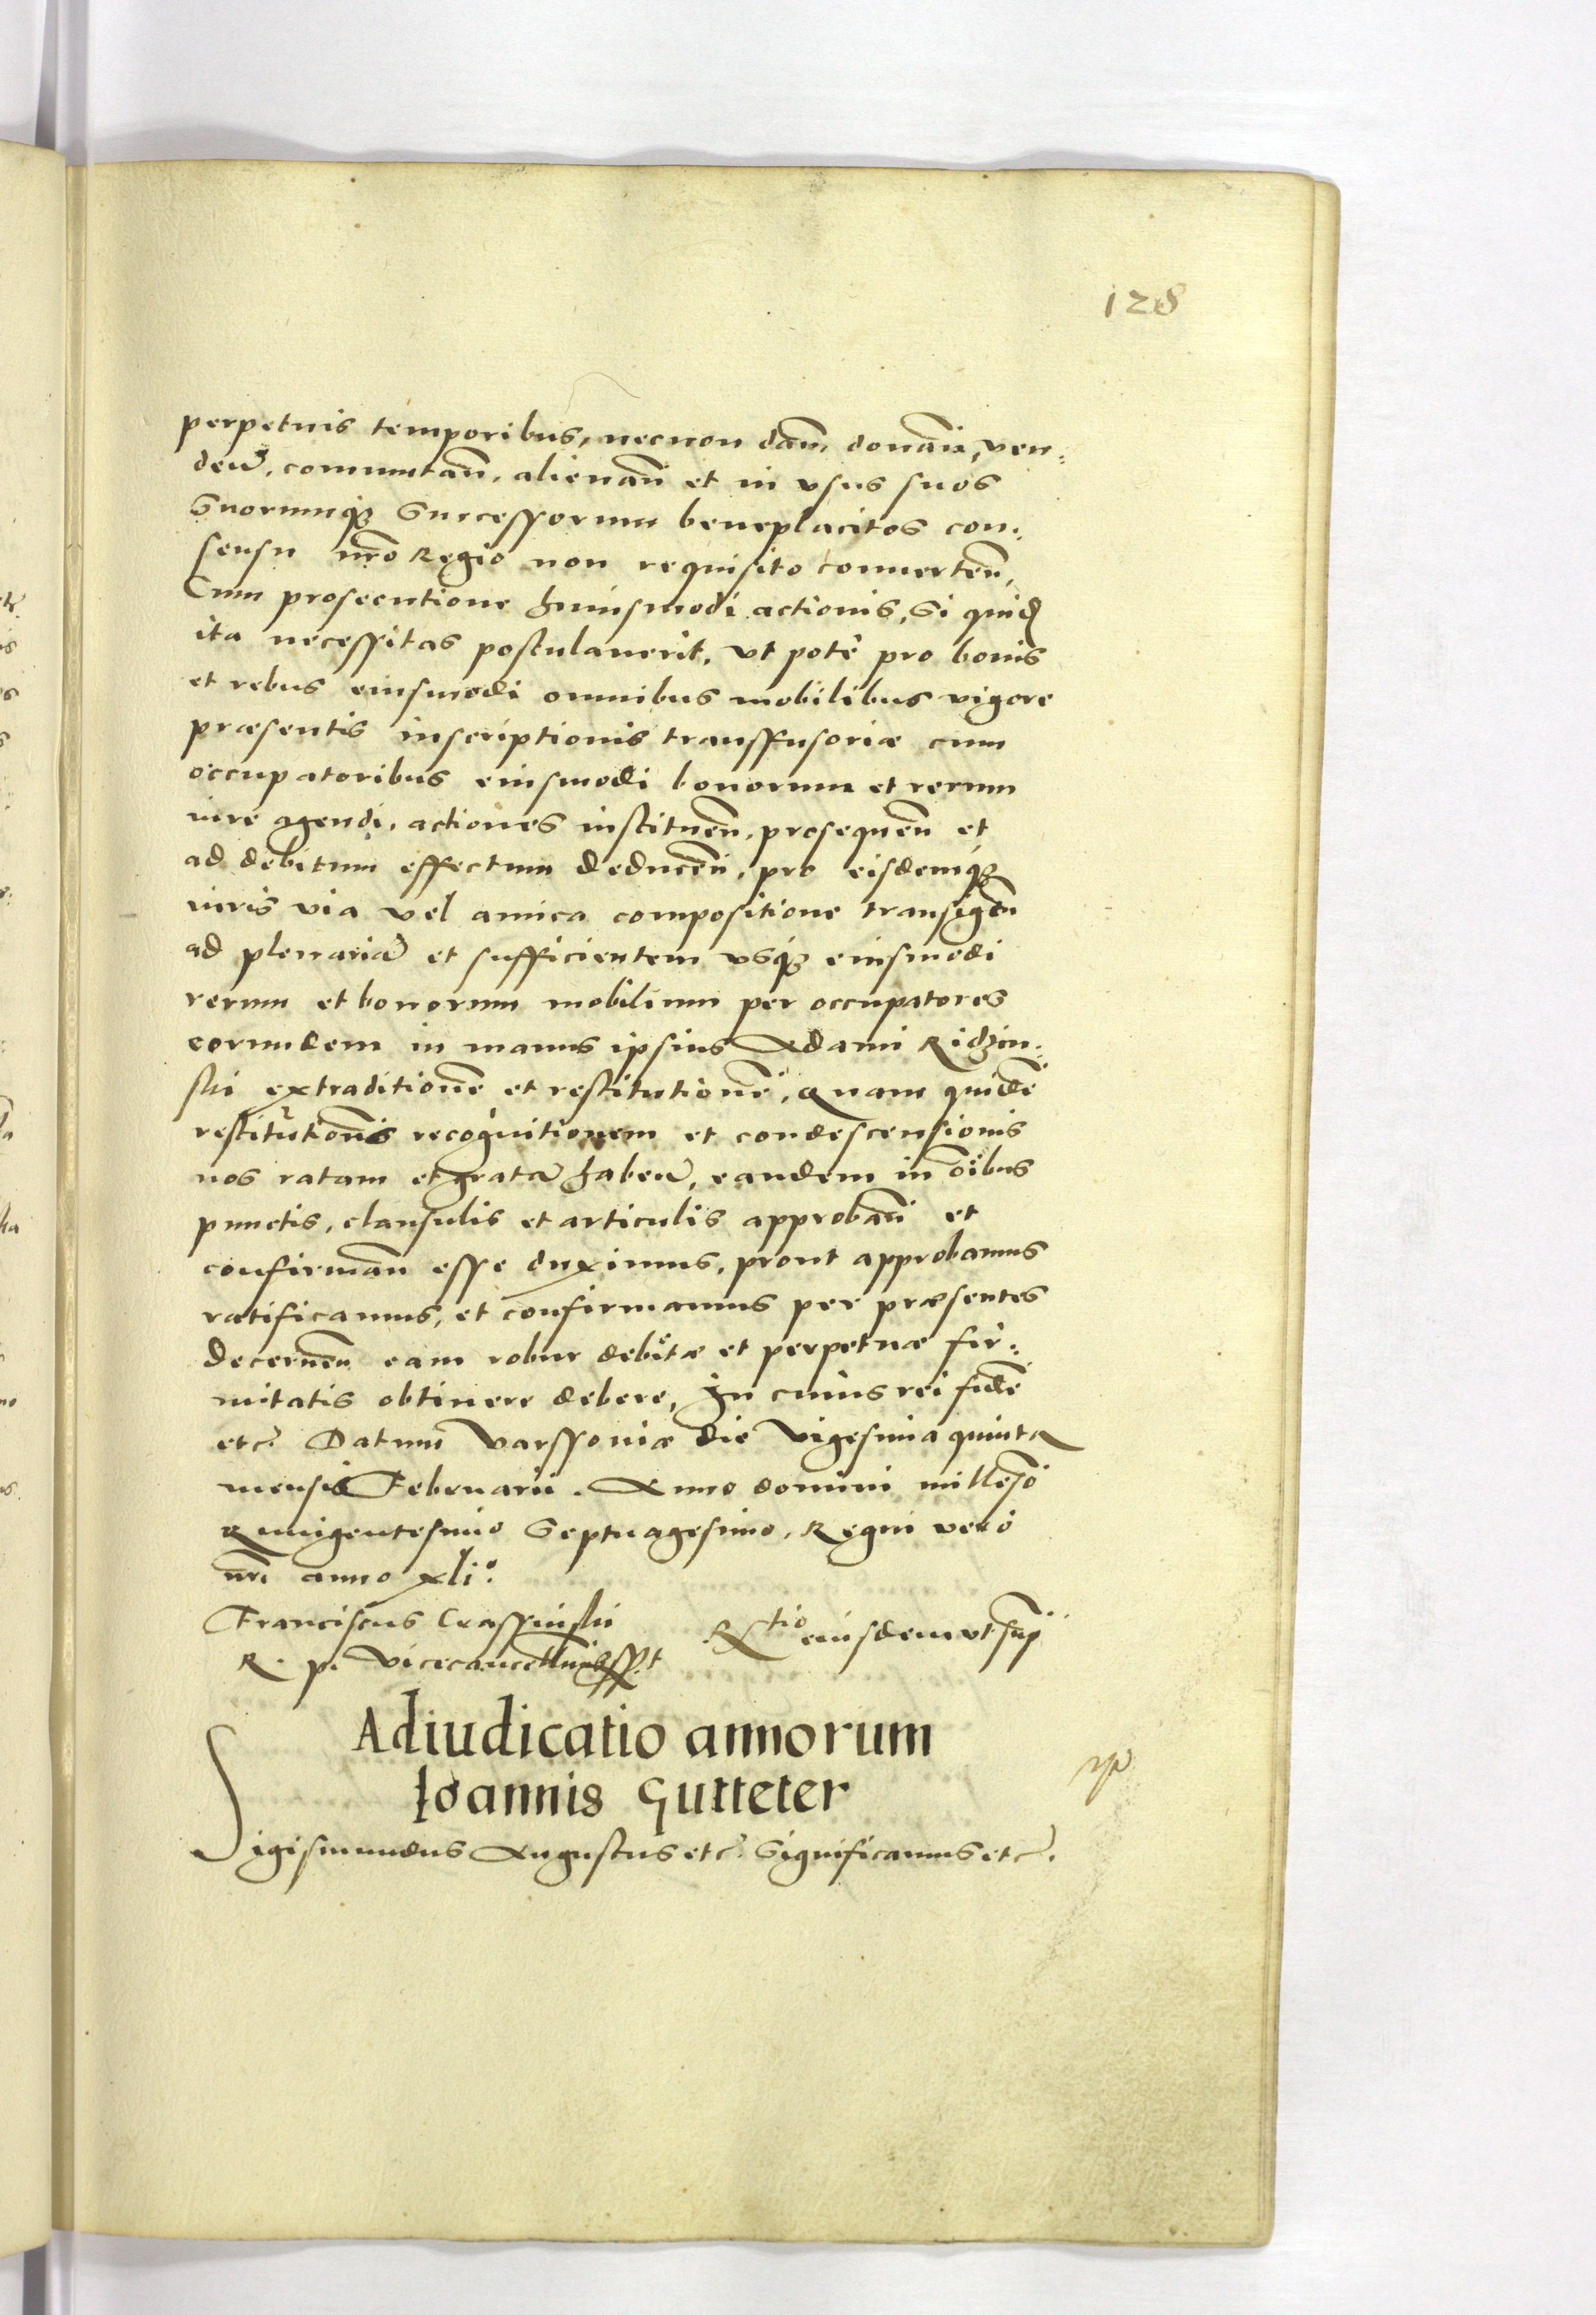 128
perpetuis temporibus, necnon dan̄, donan̄, ven:
den̄, commutan̄, alienan̄ et in vsus suos
Suorumq₃ Successorum beneplacitos con:
sensu nr̄o Regio non requisito conuerten̄,
Cum prosecutione huiusmodi actionis, Si quid
ita necessitas postulauerit, vt potè pro bonis
et rebus eiusmodi omnibus mobilibus vigore
præsentis inscriptionis transfusoriæ cum
occupatoribus eiusmodi bonorum et rerum
iure agendi, actiones instituen̄, prosequen̄ et
ad debitum effectum deducen̄, pro eisdemq₃
iuris via vel amica compositione transigen̄
ad plenariā et sufficientem vsq₃ eiusmodi
rerum et bonorum mobilium per occupatores
eorundem in manus ipsius Adami Ridzin:
ski extraditionē et restitutionē, Quam quidē
restitutionis recognitionem et condescensionis
nos ratam et gratā haben̄, eandem in oībus
punctis, clausulis et articulis approban̄ et
confirman̄ esse duximus, prout approbamus
ratificamus, et confirmamus per præsentes
decernen̄ eam robur debitæ et perpetuæ fir:
mitatis obtinere debere, In cuius rei fidē
etc. Datum Varssouiæ die Vigesima quinta
mensis Februarii. Anno domini milleſo
Quingentesimo Septuagesimo, Regni vero
nrī anno xli°.
Franciscus Crassinski
R. p. Vicecancellarius sspt
Rtio eiusdem vt sup
Adiudicatio annorum
Ioannis Gutteter
Sigismundus Augustus etc. Significamus etc.